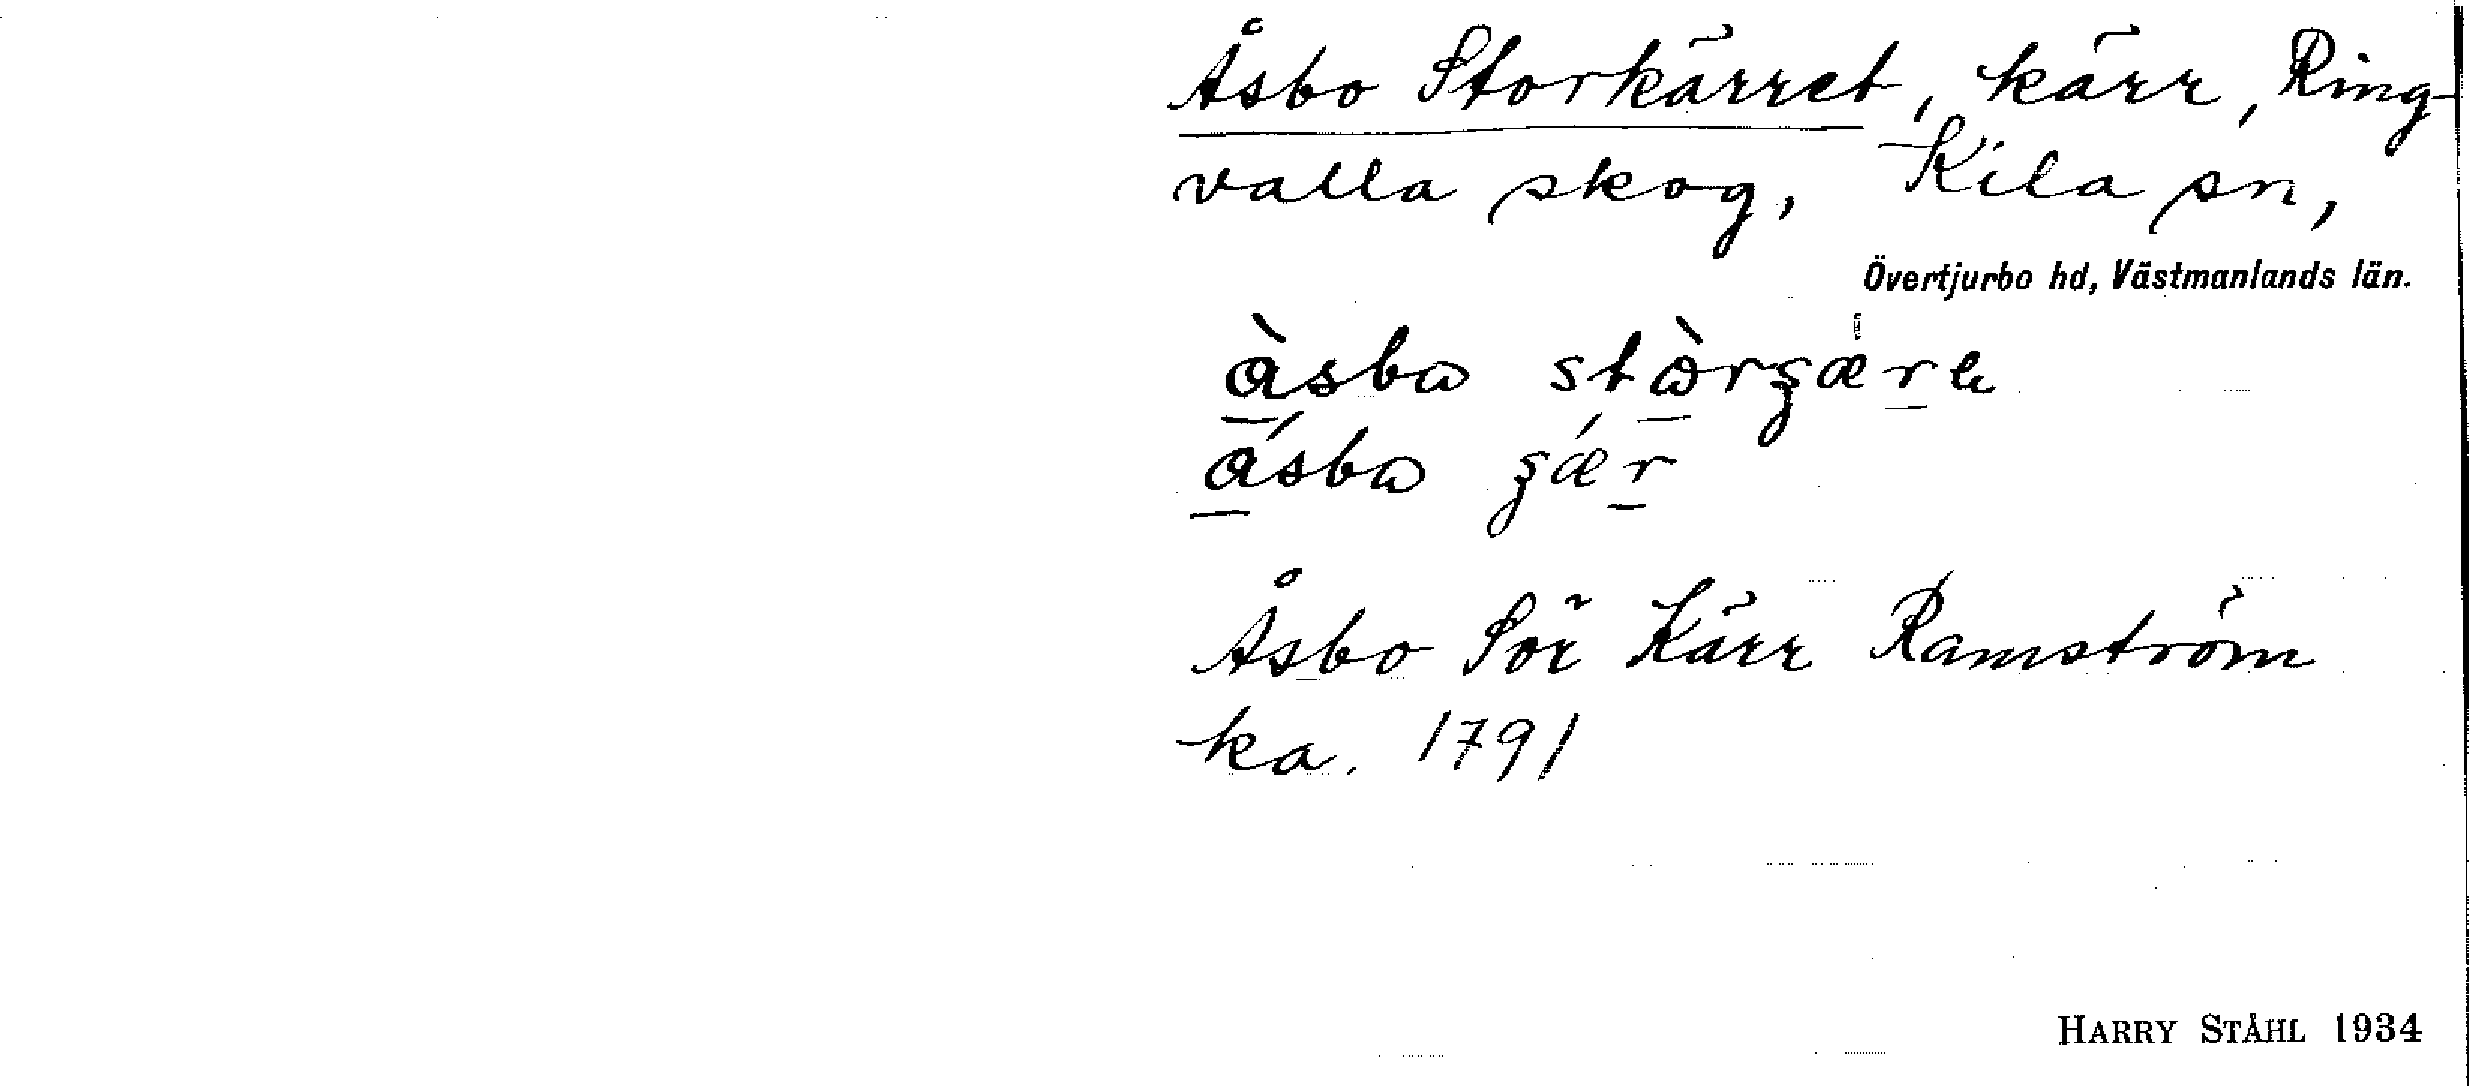 Åsbo Storkärret, kärr, Ring-
valla skog, Kila sn,
Övertjurbo hd, Västmanlands län.
Åsbo Sör Kärr Ramström
ka. 1791
HARRY STÅHL 1934